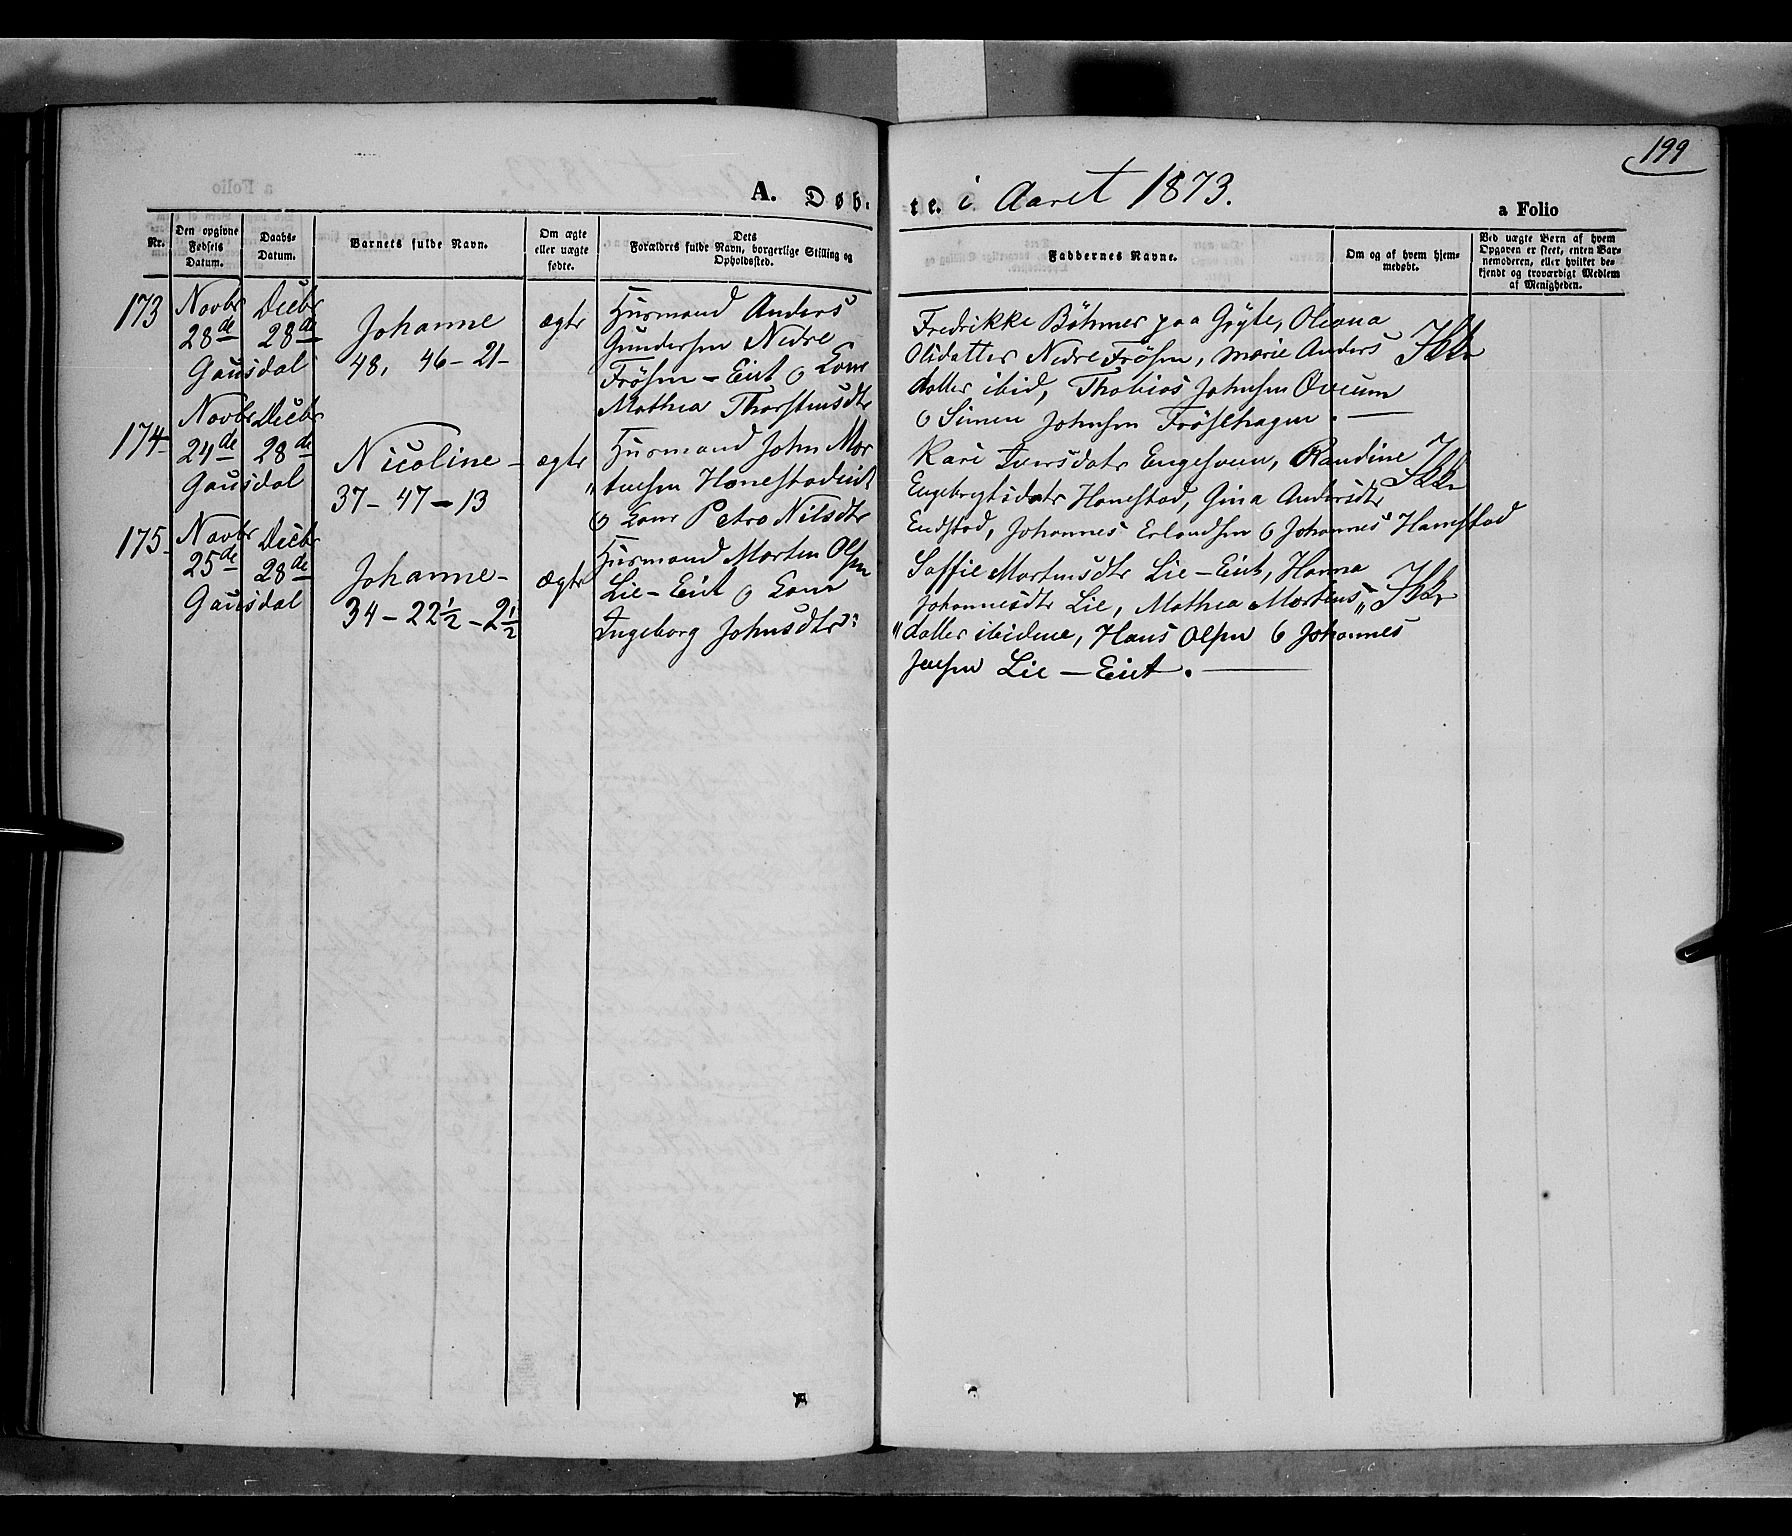 199
A. Døb-
te. i Aaret 1873.
a Folio
Nr.
Den opgivne
Fødsels
Datum.
Daabs-
Datum.
Barnets fulde Navn.
Om ægte
eller uægte
fødte.
Dets
Forældres fulde Navn, borgerlige Stilling og
Opholdssted.
Faddernes Navne.
Om og af hvem hjem-
medøbt.
Ved uægte Børn af hvem
Opgaven er skeet, enten Bar-
nemoderen, eller hvilket be-
kjendt og troværdigt Medlem
af Menigheden.
173
Novbr
28de
Decbr
28de
Gausdal
Johanne
48, 46-21-
ægte
Husmand Anders
Gundersen Nedre
Frösen-Eiet o Kone
Mathea Thorstensdtr
Fredrikke Böhmer paa Gryte, Oleana
Olsdatter Nedre Frösen, Marie Anders
datter ibid, Thobias Johnsen
o Simen Johnsen Fröselhagen. —
Ikke
174
Novbr
24de
Decbr
28de
Gausdal
Nicoline-
37-47-13
ægte
Husmand John Mor
„tensen Hornestadeiet
o Kone Petra Nilsdtr
Kari Iversdatr Engesveen, Randine
Engebrigtsdatr Hornestad, Gina Andersdtr
Endstad, Johannes Erlandsen o Johannes Hornestad
Ikke
175-
Novbr
25de
Decbr
28de
Gausdal
Johanne-
34-22½-2½
ægte
Husmand Morten Olsen
Lie-Eiet o Kone
Ingeborg Johnsdtr:
Soffie Mortensdtr Lie-Eiet, Hanna
Johannesdtr Lie, Mathea Mortens„
„datter ibidem, Hans Olsen o Johannes
Jensen Lie-Eiet. —
Ikke